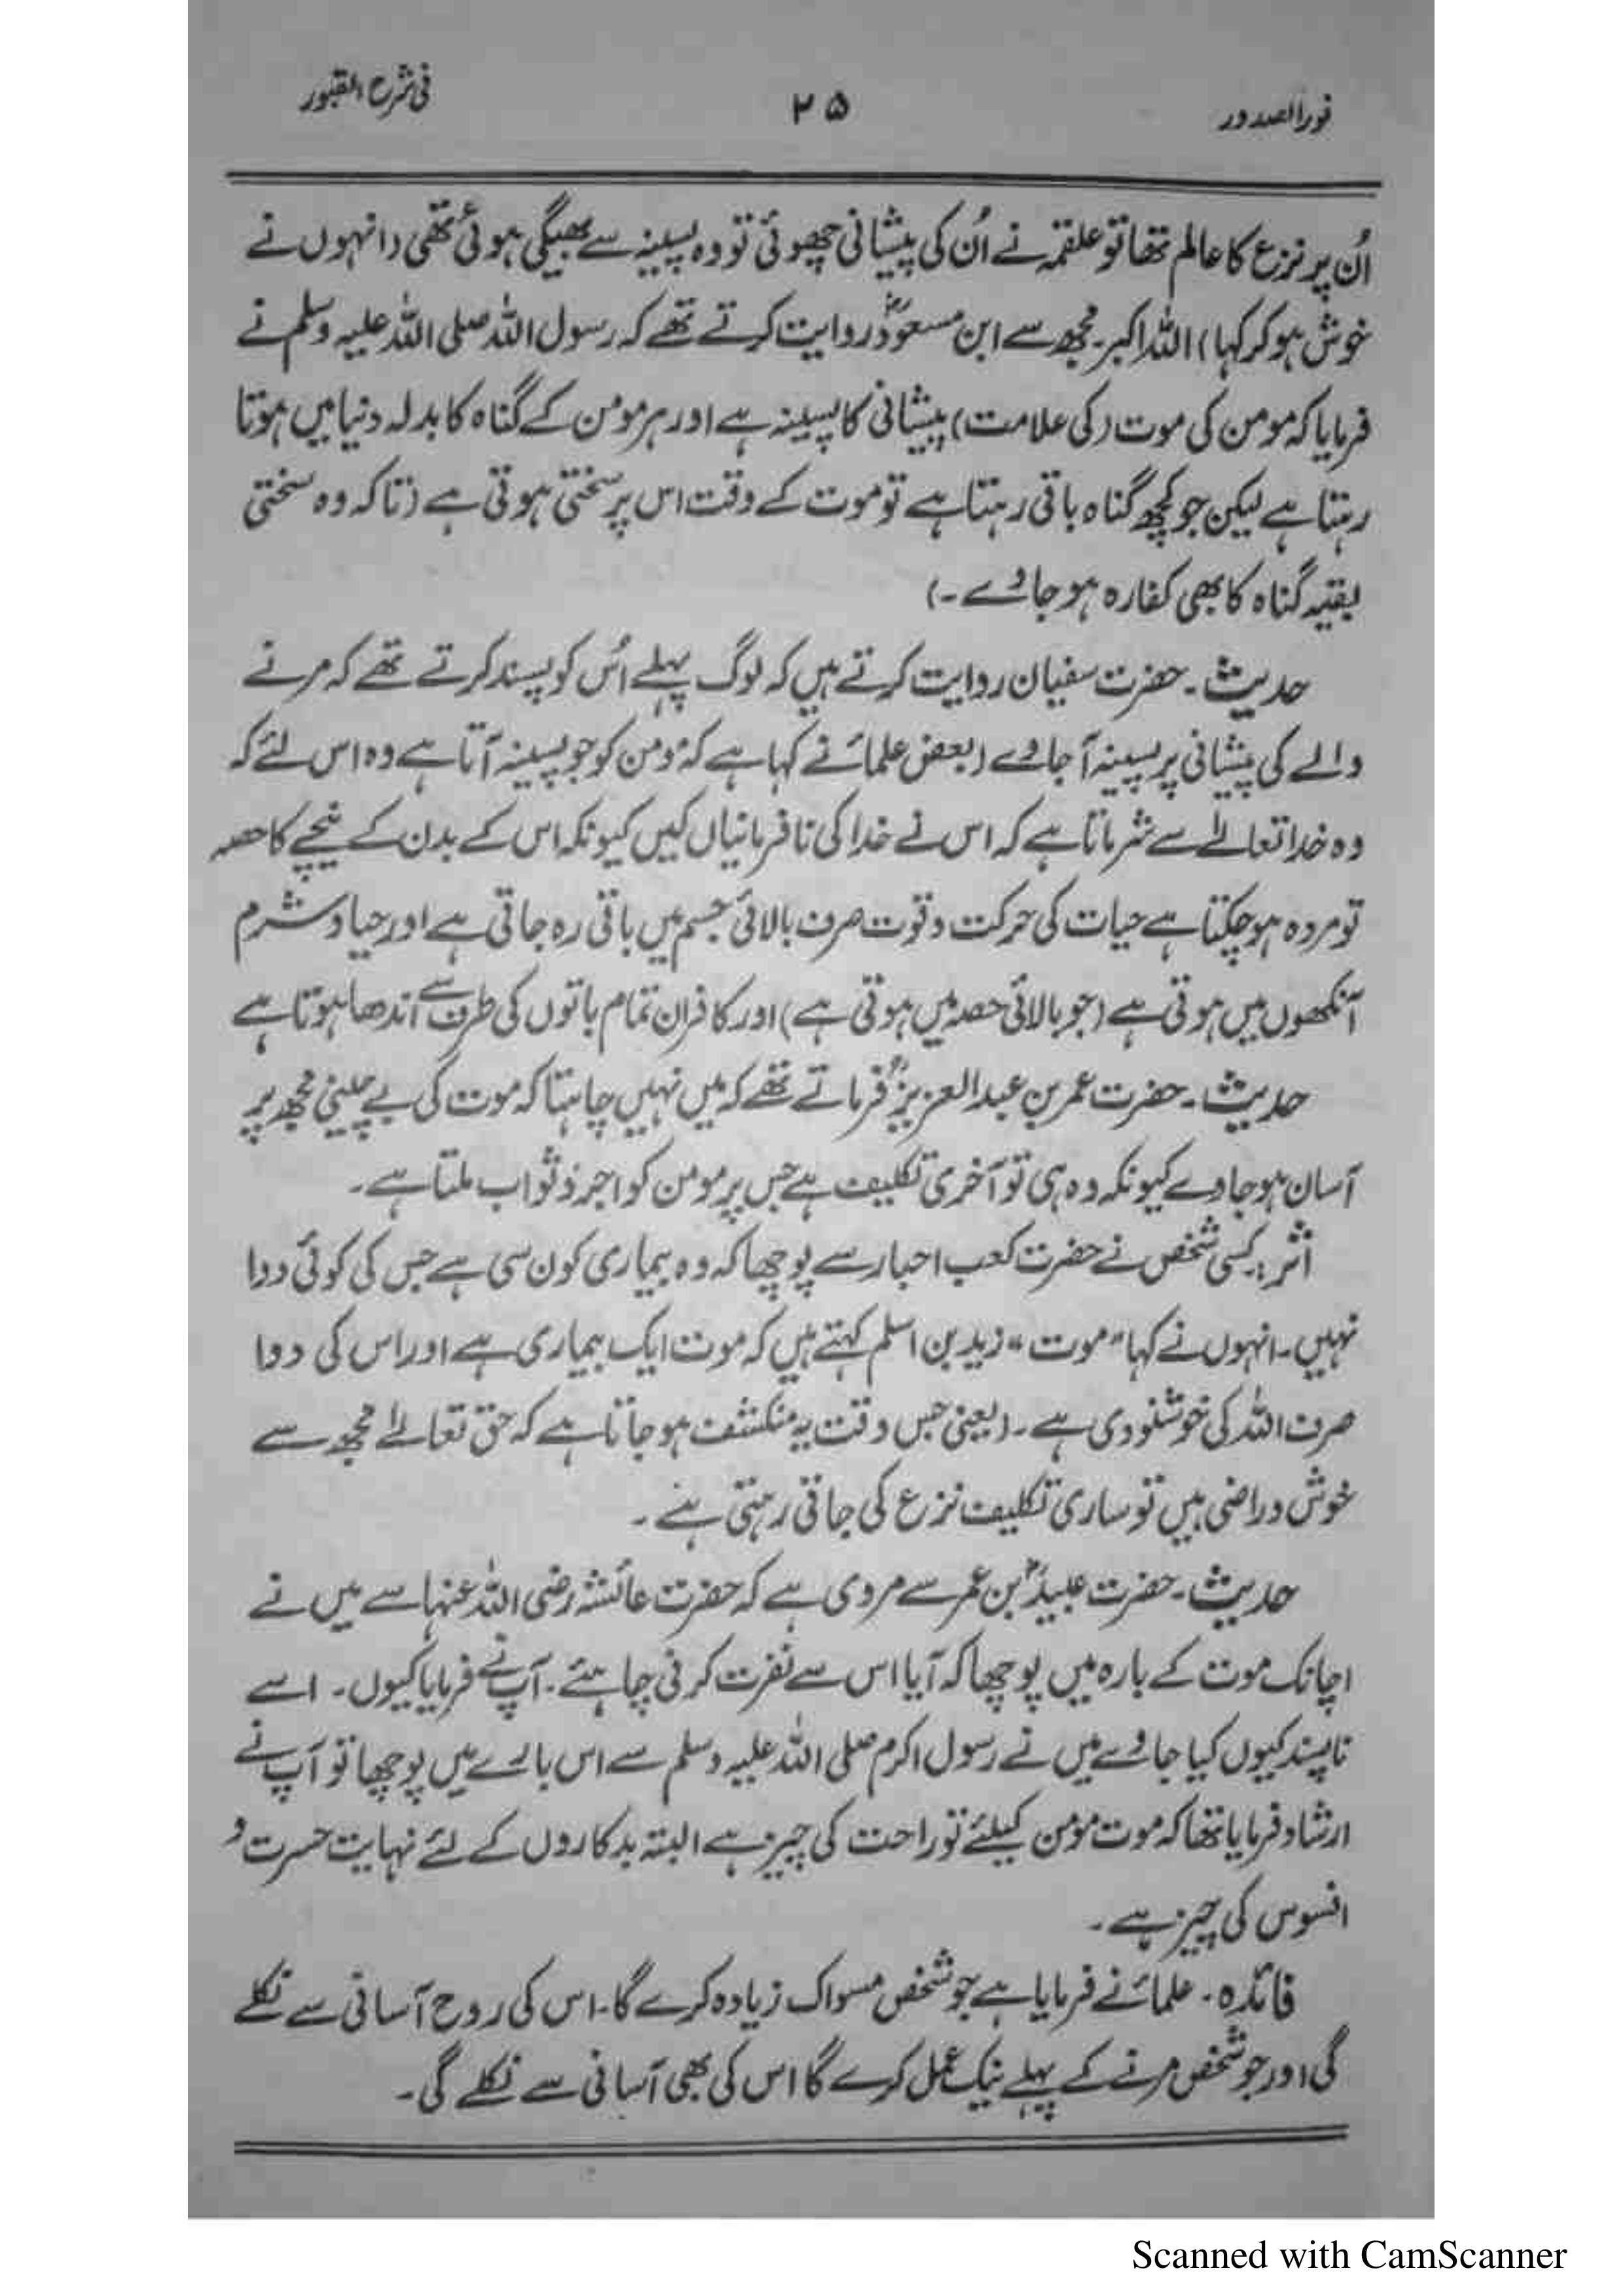 نورالصدور ۲۵ فی شرح القبور
اُن پر نزع کا عالم تھا تو علقمہ نے اُن کی پیشانی چھوئی تو وہ پسینہ سے بھیگی ہوئی تھی (انہوں نے
خوش ہو کر کہا) اللہ اکبر۔ مجھ سے ابن مسعودؓ روایت کرتے تھے کہ رسول اللہ صلی اللہ علیہ وسلم نے
فرمایا کہ مومن کی موت (کی علامت) پیشانی کا پسینہ ہے اور ہر مومن کے گناہ کا بدلہ دنیا میں ہوتا
رہتا ہے لیکن جو کچھ گناہ باقی رہتا ہے تو موت کے وقت اس پر سختی ہوتی ہے (تاکہ وہ سختی
بقیہ گناہ کا بھی کفارہ ہو جاوے۔)
حدیث۔ حضرت سفیان روایت کرتے ہیں کہ لوگ پہلے اُس کو پسند کرتے تھے کہ مرنے
والے کی پیشانی پر پسینہ آ جاوے (بعض علمائے کہا ہے کہ مومن کو جو پسینہ آتا ہے وہ اس لئے کہ
وہ خدا تعالےٰ سے شرماتا ہے کہ اس نے خدا کی نافرمانیاں کیں کیونکہ اس کے بدن کے نیچے کا حصہ
تو مردہ ہو چکتا ہے حیات کی حرکت و قوت صرف بالائی جسم میں باقی رہ جاتی ہے اور حیا و شرم
آنکھوں میں ہوتی ہے (جو بالائی حصہ میں ہوتی ہے) اور کافر ان تمام باتوں کی طرف سے اندھا ہوتا ہے
حدیث۔ حضرت عمر بن عبد العزیزؒ فرماتے تھے کہ میں نہیں چاہتا کہ موت کی بے چینی مجھ پر
آسان ہو جاوے کیونکہ وہ ہی تو آخری تکلیف ہے جس پر مومن کو اجر و ثواب ملتا ہے۔
اثر: کسی شخص نے حضرت کعب احبار سے پوچھا کہ وہ بیماری کون سی ہے جس کی کوئی دوا
نہیں۔ انہوں نے کہا "موت" زید بن اسلم کہتے ہیں کہ موت ایک بیماری ہے اور اس کی دوا
صرف اللہ کی خوشنودی ہے۔ (یعنی جس وقت یہ منکشف ہو جاتا ہے کہ حق تعالےٰ مجھ سے
خوش و راضی ہیں تو ساری تکلیف نزع کی جاتی رہتی ہے۔
حدیث۔ حضرت عبیدؓ بن عمر سے مروی ہے کہ حضرت عائشہ رضی اللہ عنہا سے میں نے
اچانک موت کے بارہ میں پوچھا کہ آیا اس سے نفرت کرنی چاہئے۔ آپ نے فرمایا کیوں۔ اسے
ناپسند کیوں کیا جاوے میں نے رسول اکرم صلی اللہ علیہ وسلم سے اس بارے میں پوچھا تو آپ نے
ارشاد فرمایا تھا کہ موت مومن کیلئے تو راحت کی چیز ہے البتہ بدکاروں کے لئے نہایت حسرت و
افسوس کی چیز ہے۔
فائدہ۔ علمائے فرمایا ہے جو شخص مسواک زیادہ کرے گا۔ اس کی روح آسانی سے نکلے
گی اور جو شخص مرنے کے پہلے نیک عمل کرے گا اس کی بھی آسانی سے نکلے گی۔
Scanned with CamScanner